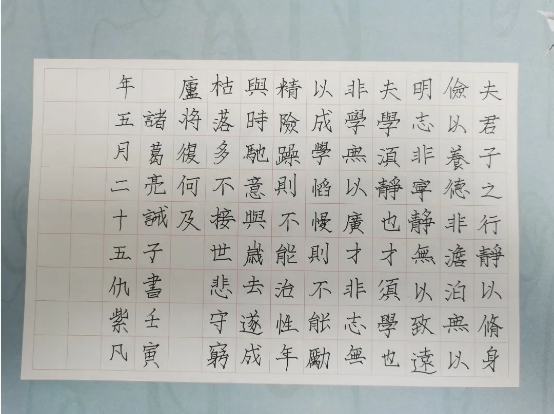 夫君子之行靜以脩身
儉以養德非澹泊無以
明志非寧靜無以致遠
夫學湏靜也才須學也
非學無以廣才非志無
以成學慆慢則不能勵
精險躁則不能治性年
與時馳意與歲去遂成
枯落多不接世悲守窮
廬將復何及
諸葛亮誡子書壬寅
年五月二十五仇紫凡